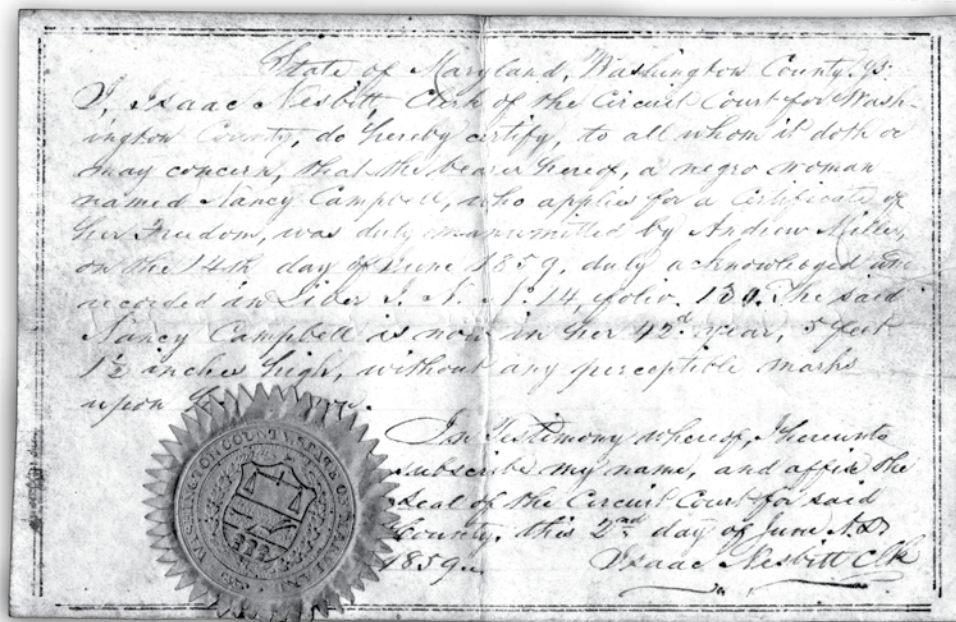 State of Maryland, Washington County, ss:
I, Isaac Nesbitt, Clerk of the Circuit Court for Wash-
ington County, do hereby certify, to all whom it doth or
may concern, that the bearer hereof, a negro woman
named Nancy Campbell, who applies for a Certificate of
her Freedom, was duly manumitted by Andrew Miller,
on the 14th day of June 1859, duly acknowledged and
recorded in Liber I. N. No. 14, folio. 130. The said
Nancy Campbell is now in her 42d year, 5 feet
1½ inches high, without any perceptible marks
upon
In Testimony whereof, I hereunto
subscribe my name, and affix the
seal of the Circuit Court for said
County, this 2nd day of June A.D.
1859.
Isaac Nesbitt Clk
WASHINGTON COUNTY STATE OF MARYLAND